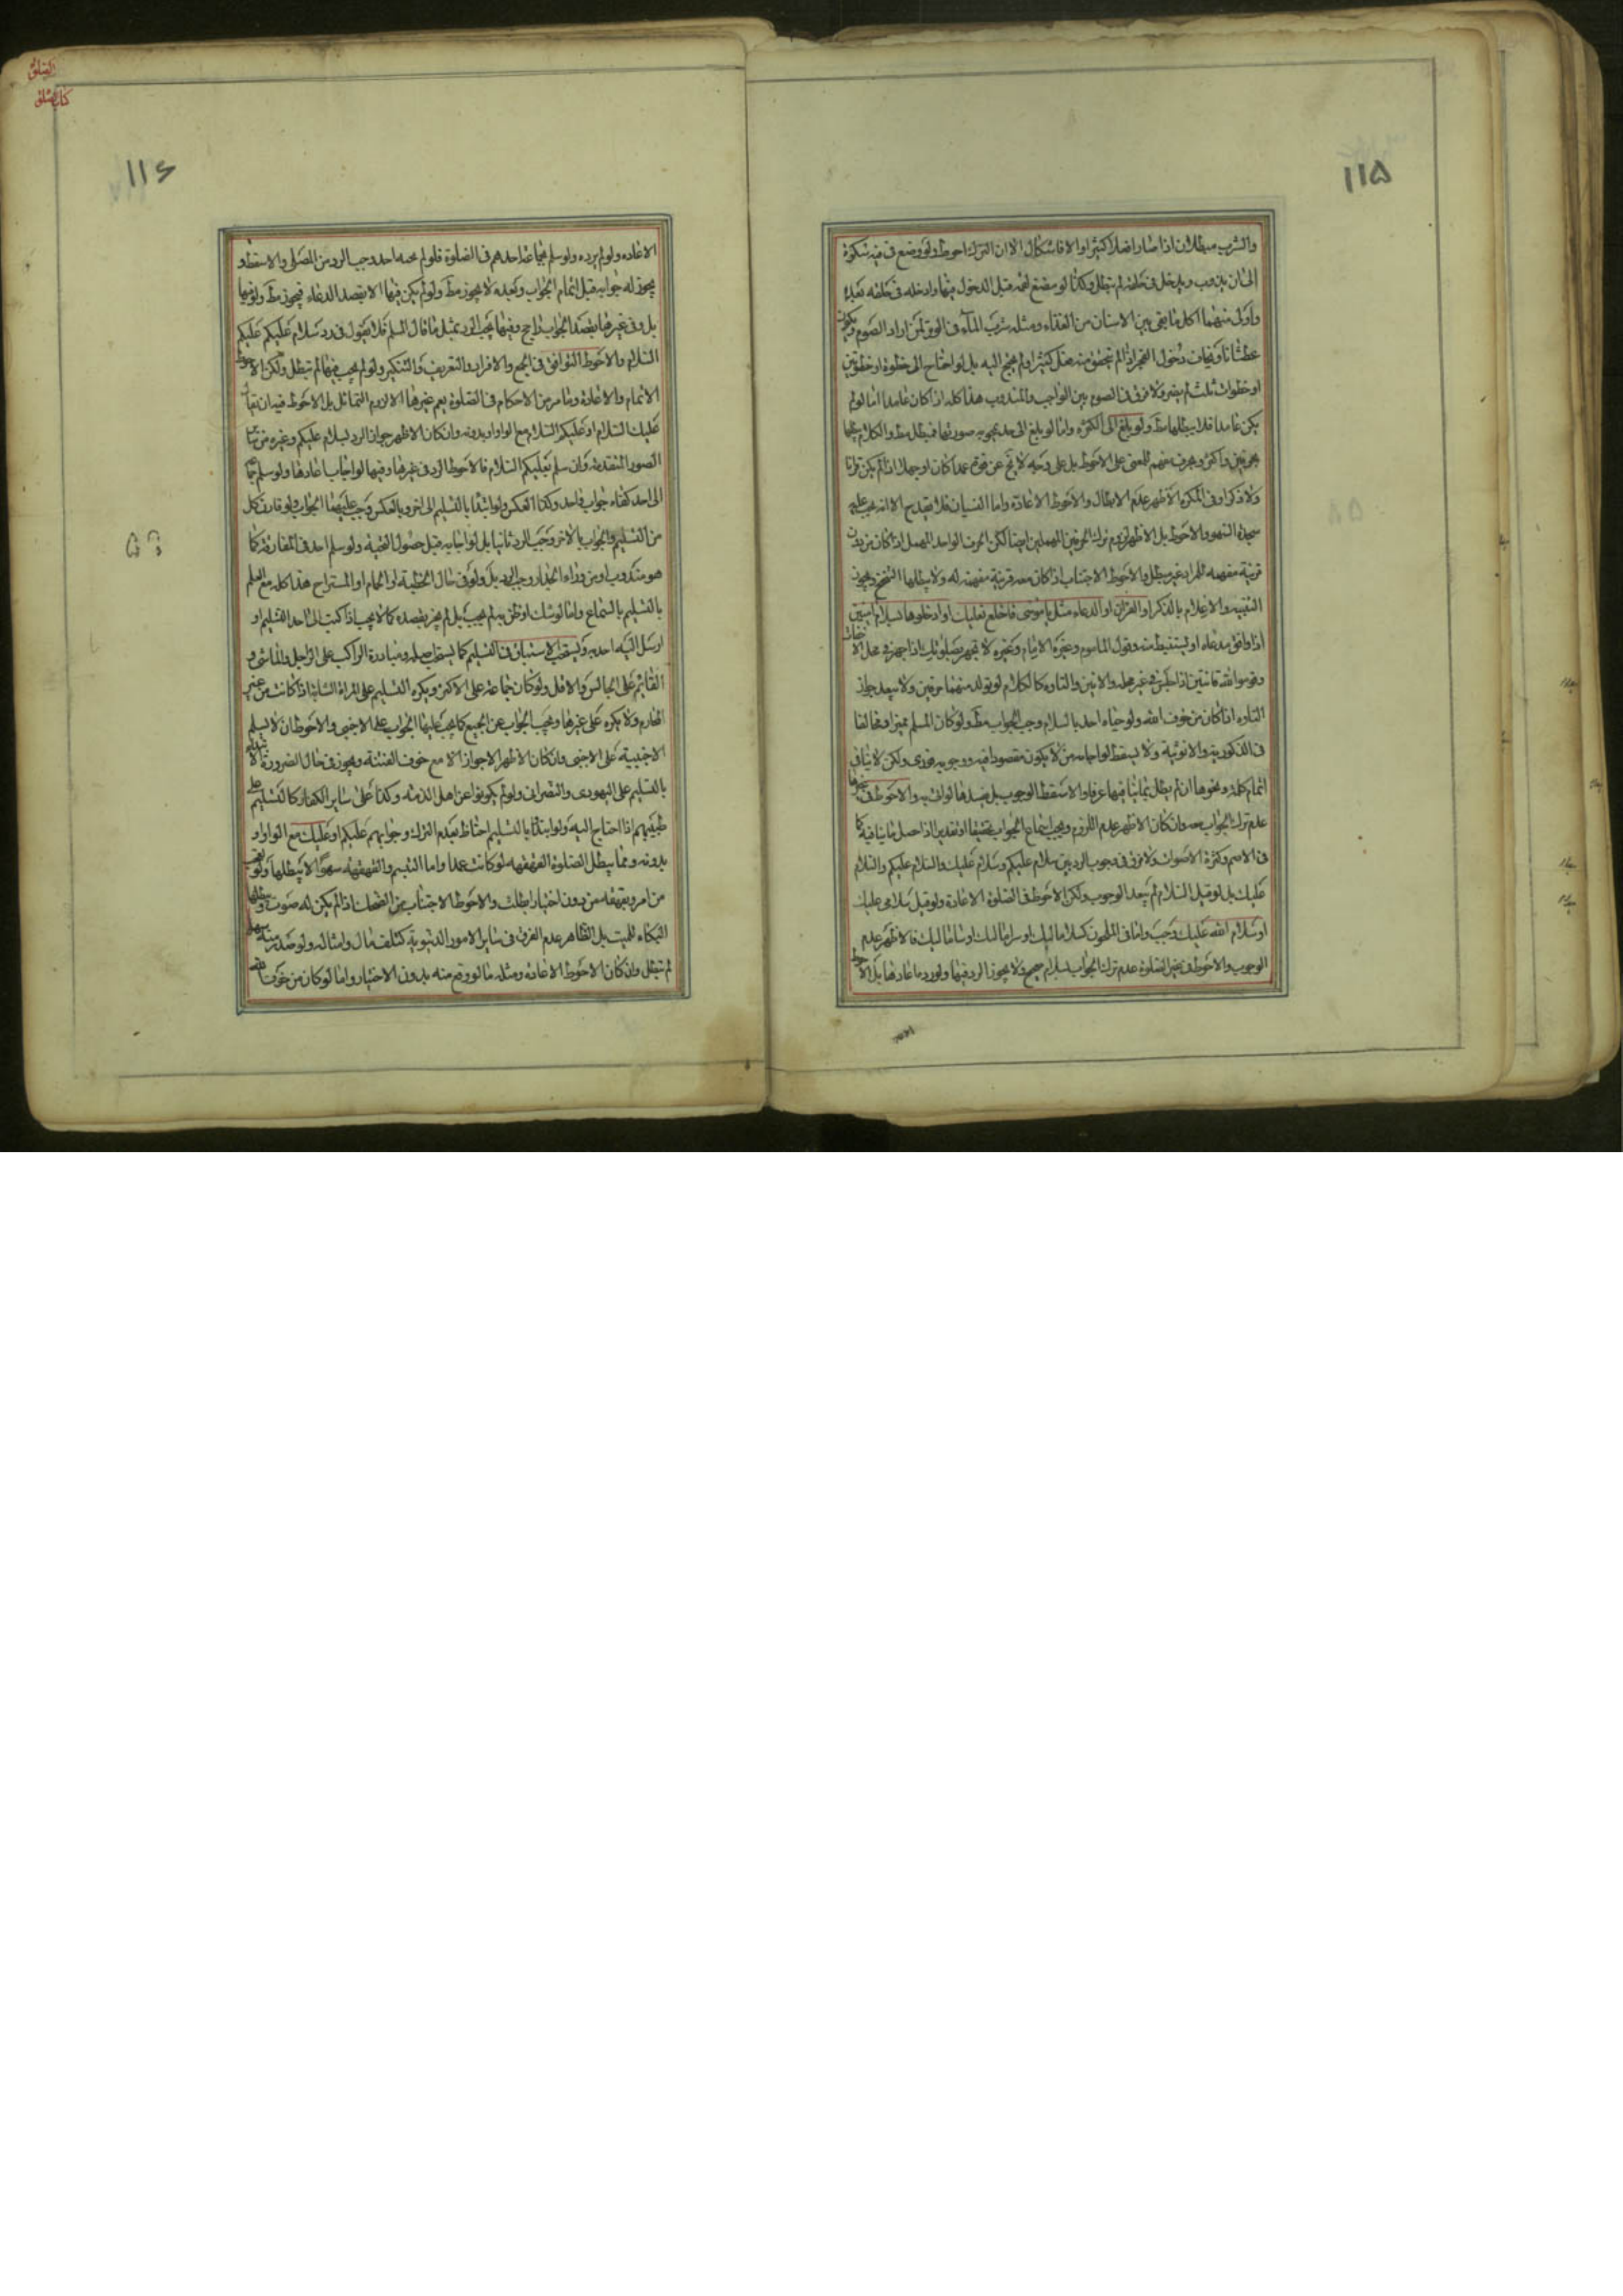 ١١۵
والشرب مبطلان اذا صارا فعلا كثيرا والا فاشكال الا ان الترك احوط ولو وضع فى فيه سكرة
الى ان يذوب ويدخل فى حلقه لم تبطل وكذا لو مضغ لقمة قبل الدخول فيها وادخله فى حلقه بعده
واولى منهما اكل ما بقى بين الاسنان من الغذاء ومثله شرب الماء فى الوتر لمن اراد الصوم ويكون
عطشانا ويخاف دخول الفجر اذا لم يتحقق منه فعل كثير ولم يحتج اليه بل لو احتاج الى خطوة او خطوتين
او خطوات ثلث لم يضر ولا فرق فى الصوم بين الواجب والمندوب هذا كله اذا كان عامدا اما لو لم
يكن عامدا فلا يبطلها مط ولو بلغ الى الكثرة واما لو بلغ الى حد يمحو به صورتها فيبطل مط والكلام فيها
بحرفين واكثر وبحرف مفهم للمعنى على الاحوط بل على وجه لا يخ عن قوة عمدا كان او جهلا اذا لم يكن قرانا
ولا ذكرا وفى المكره الاظهر عدم الابطال والاحوط الاعادة واما النسيان فلا يقدح الا انه يجب عليه
سجدة السهو والاحوط بل الاظهر لزوم ترك الحرفين المهملين ايضا لكن الحرف الواحد المهمل اذا كان من دون
قرينة مفهمه للمراد غير مبطل والاحوط الاجتناب اذا كان معه قرينة مفهمة له ولا يبطلها التنحنح ويجوز
التنبيه والاعلام بالذكر او القران او الدعاء مثل يا موسى فاخلع نعليك او ادخلوها بسلام امنين
وقوموا لله قانتين
التاوه اذا كان من خوف الله ولو حياه احد بالسلام وجب الجواب مط ولو كان المسلم مميزا او مخالفا
عدم ترك الجواب معه وان كان الاظهر عدم اللزوم ويجب اسماع الجواب تحقيقا او تقديرا اذا حصل ما ينافيه كما
فى الاصم وكثرة الاصوات ولا فرق فى وجوب الرد بين سلام عليكم وسلام عليك والسلام عليكم والسلام
عليك بل لو قيل السلام لم يبعد الوجوب ولكن الاحوط فى الصلوة الاعادة ولو قيل سلامى عليك
او سلام الله عليك وجب واما فى الملحون كسلاما ليك فالاظهر عدم
الوجوب والاحوط فى غير الصلوة عدم ترك الجواب بسلام صحيح ولا يجوز الرد فيها ولو رد ما عادها بل الاحوط
الصلوة
كتاب الصلوة
١١۶
الاعاده ولو لم يرده ولو سلم بجماعة احدهم فى الصلوة فلو لم يجبه احد وجب الرد من المصلى والا سقط و
يجوز له جوابه قبل اتمام الجواب وبعده لا يجوز مط ولو لم يكن فيها الا بقصد الدعاء فيجوز مط
بل وفى غيرها بقصد الجواب راجح وفيها يجب الرد بمثل ما قال المسلم فلا يقول فى رد سلام عليكم عليكم
السلام والاحوط التوافق فى الجمع والافراد والتعريف والتنكير ولو لم يجب فيها لم تبطل ولكن الاحوط
الاتمام والاعادة وما مر من الاحكام فى الصلوة يعم غيرها الا لزوم التماثل بل الاحوط فيه ان يقال
عليك السلام او عليكم السلام مع الواو او بدونه وان كان الاظهر جواز الرد بسلام عليكم وغيره من ساير
الصور المتقدمة وان سلم بعليكم السلام فالاحوط الرد فى غيرها وفيها لو اجاب اعادها ولو سلم جماعة
الى احد كفاه جواب واحد وكذا العكس ولو ابتدا بالتسليم الى اخر وبالعكس وجب عليهما الجواب ولو قارن كل
من التسليم والجواب بالاخر وجب الرد ثانيا بل لو اجابه قبل حصول التحية ولو سلم احد فى المفارقة كما
هو مندوب او من وراء الجدار وجب الرد بل ولو فى حال الخطبة او الحمام او المستراح هذا كله مع العلم
بالتسليم بالسماع واما لو شك او ظن به لم يجب بل لم يجز بقصده كما لا يجب اذا كتب الى احد التسليم او
ارسل اليه احد به ويستحب الاستباق فى التسليم كما يستحب مبادرة الراكب على الراجل والماشى و
القايم على الجالس والاقل ولو كان جماعة على الاكثر ويكره التسليم على المراة الشابة اذا كانت من غير
المحارم ولا يكره على غيرها ويجب الجواب عن الجميع كما يجب عليها الجواب على الاجنبى والاحوط ان لا يسلم
الاجنبية على الاجنبى وان كان الاظهر الجواز الا مع خوف الفتنة ويجوز فى حال الضرورة
بالتسليم على اليهودى والنصرانى ولو لم يكونوا من اهل الذمة وكذا على ساير الكفار كالتسليم على
طبيبهم اذا احتاج اليه ولو ابتداوا بالتسليم احتاط بعدم الترك وجوابهم عليكم او عليك مع الواو او
بدونه ومما يبطل الصلوة القهقهه لو كانت عمدا واما التبسم والقهقهه سهوا لا يبطلها
من امر وقهقه من دون اختيار ابطلت والاحوط الاجتناب من الضحك اذا لم يكن له صوت
البكاء للميت بل الظاهر عدم الفرق فى ساير الامور الدنيوية كتلف مال وامثاله ولو صدر منه سهوا
لم تبطل وان كان الاحوط الاعادة ومثله ما لو وقع منه بدون الاختيار واما لو كان من خوف الله